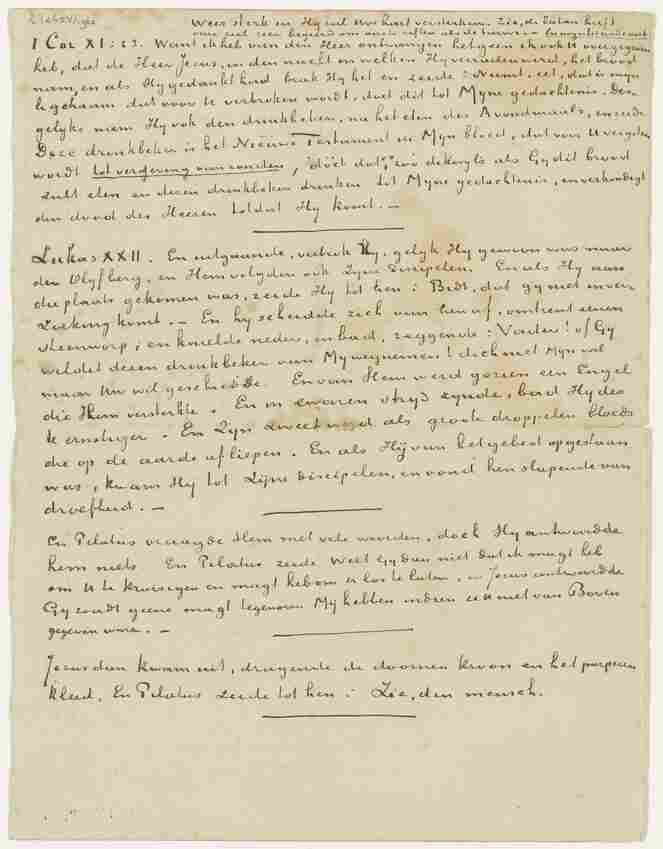 Wees sterk en Hij zal Uw hart versterken. Zie, de Satan heeft
om ulieden te ziften als de tarwe
I Cor XI : 23. Want ik heb van den Heer ontvangen hetgeen ik ook U overgegeven
heb, dat de Heer Jezus, in den nacht in welken Hy verraden werd, het brood
nam, en als Hy gedankt had brak Hy het en zeide : Neemt, eet, dat is myn
lichaam dat voor U verbroken wordt, doet dit tot Myne gedachtenis. Des-
gelyks nam Hy ook den drinkbeker, na het eten des Avondmaals, en zeide
Deze drinkbeker is het Nieuwe Testament in Myn bloed, dat voor U vergoten
wordt tot vergeving van zonden, "doet dat", zoo dikwyls als Gy dit brood
zult eten en dezen drinkbeker drinken tot Myne gedachtenis, en verkondigt
den dood des Heeren totdat Hy komt. —
Lukas XXII. En uitgaande, vertrok Hy, gelyk Hy gewoon was naar
den Olyfberg, en Hem volgden ook Zyne discipelen. En als Hy aan
die plaats gekomen was, zeide Hy tot hen : Bidt, dat gy niet in ver-
zoeking komt. — En hy scheidde zich van hen af, omtrent eenen
steenworp ; en knielde neder, en bad, zeggende : Vader! of Gy
wildet dezen drinkbeker van My wegnemen! doch niet Myn wil
maar Uw wil geschiede. En van Hem werd gezien een Engel
die Hem versterkte. En in zwaren stryd zynde, bad Hy des
te ernstiger. En Zyn zweet werd als groote droppelen bloeds
die op de aarde afliepen. En als Hij van het gebed opgestaan
was, kwam Hy tot Zyne discipelen, en vond hen slapende van
droefheid. —
En Pilatus vraagde Hem met vele woorden, doch Hy antwoordde
hem niets En Pilatus zeide Weet gy dan niet dat ik magt heb
om U te kruisigen en magt heb om U los te laten, en Jezus antwoordde
Gy zoudt geene magt tegenover My hebben indien ze U niet van Boven
gegeven ware. —
Jezus dan kwam uit, dragende de doornen kroon en het purperen
kleed. En Pilatus zeide tot hen : Zie, den mensch.